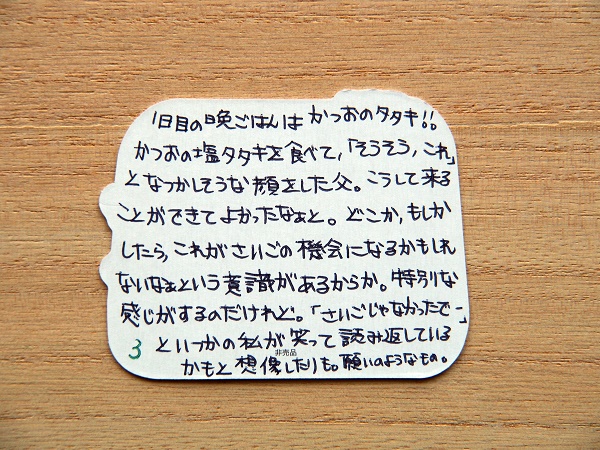 1日目の晩ごはんは かつおのタタキ!!
かつおの塩タタキを食べて,「そうそう,これ」
となつかしそうな顔をした父。こうして来る
ことができてよかったなぁと。どこか,もしか
したら,これがさいごの機会になるかもしれ
ないなぁという意識があるからか。特別な
感じがするのだけれど。「さいごじゃなかったでー」
3 といつかの私が笑って読み返している
非売品
かもと想像したりも。願いのようなもの。